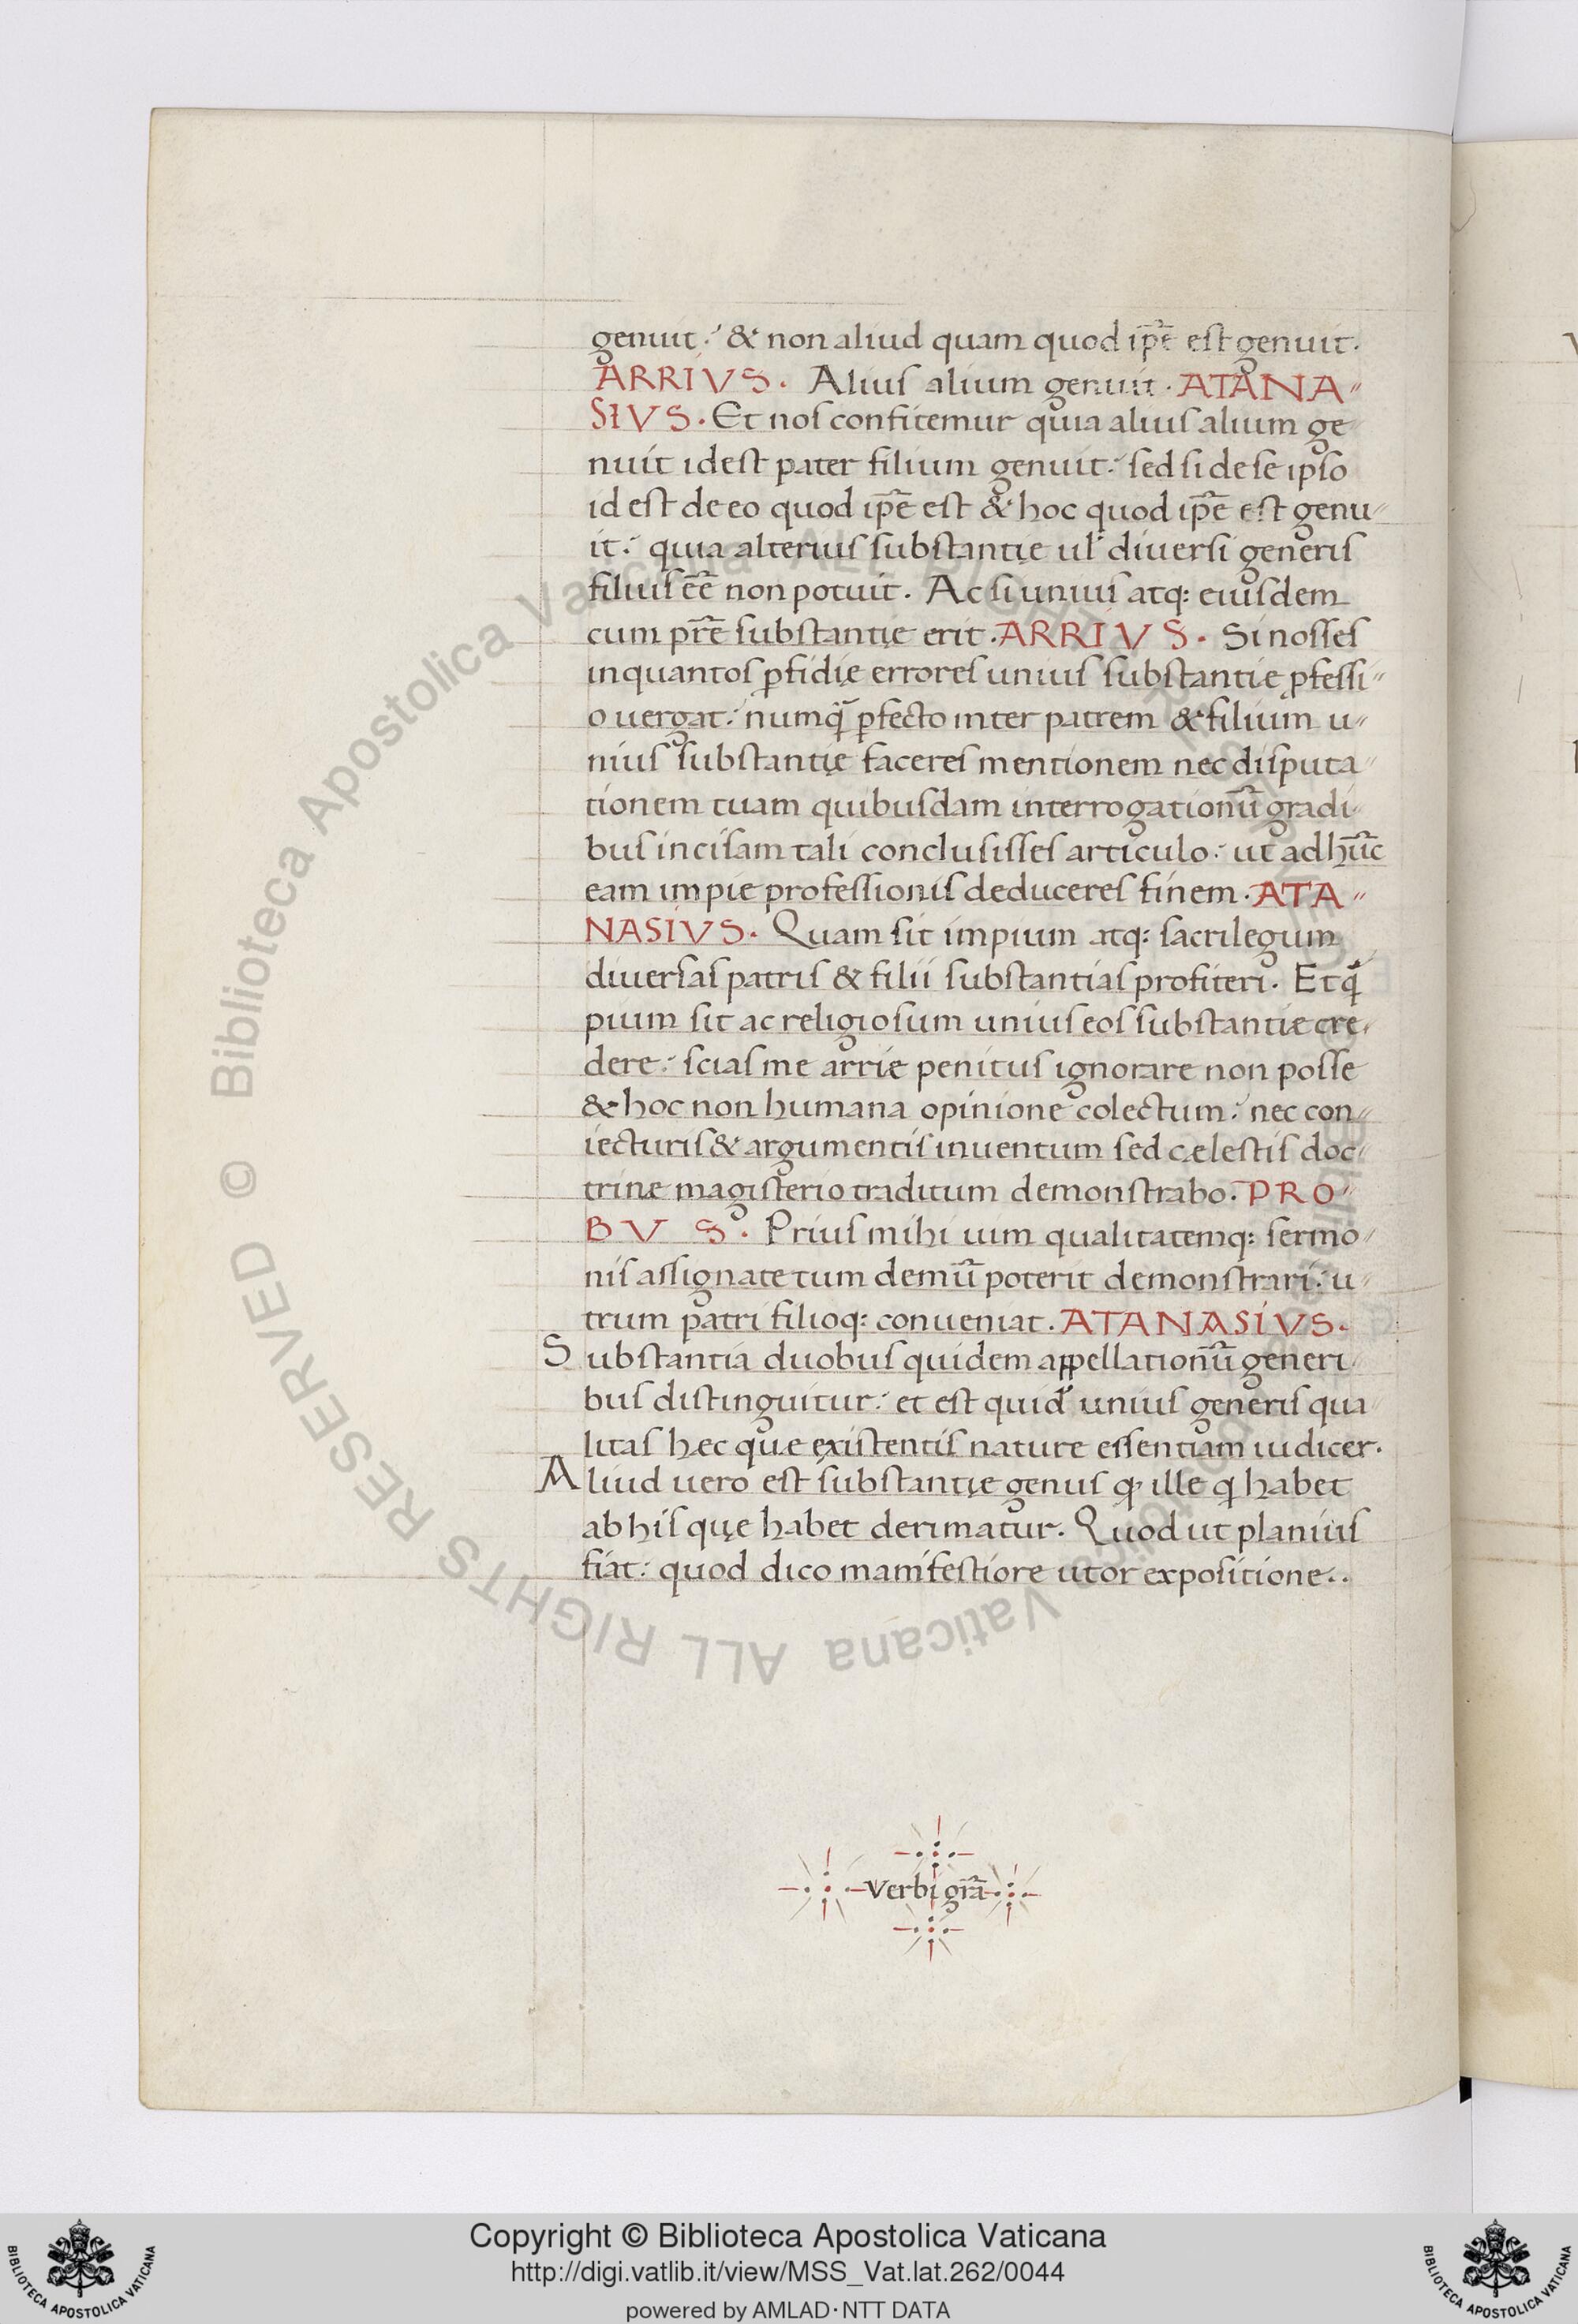 genuit: & non aliud quam quod ip̅e est genuit.
ARRIVS. Alius alium genuit. ATANA〃
SIVS. Et nos confitemur quia alius alium ge
nuit id est pater filium genuit: sed si de se ipso
id est de eo quod ip̅e est & hoc quod ip̅e est genu〃
it: quia alterius substantię ul̕ diuersi generis
filius ee̅ non potuit. Ac si unius atq: eiusdem
cum pr̅e substantię erit. ARRIVS. Si nosses
in quantos ꝑfidię errores unius substantię ꝓfessi〃
o uergat: numq̅ ꝓfecto inter patrem & filium u〃
nius substantię faceres mentionem nec disputa〃
tionem tuam quibusdam interrogationu̅ gradi〃
bus incisam tali conclusisses articulo: ut ad hu̅c
eam impie professionis deduceres finem. ATA〃
NASIVS. Quam sit impium atq: sacrilegum
diuersas patris & filii substantias profiteri. Et q̅
pium sit ac religiosum unius eos substantię cre〃
dere: scias me arrie penitus ignorare non posse
& hoc non humana opinione colectum: nec con〃
iecturis & argumentis inuentum sed cælestis doc〃
trinæ magisterio traditum demonstrabo. PRO〃
BVS. Prius mihi uim qualitatemq: sermo〃
nis assignate tum demu̅ poterit demonstrari: u〃
trum patri filioq: conueniat. ATANASIVS.
Substantia duobus quidem appellationu̅ generi〃
bus distinguitur: et est quid̕ unius generis qua〃
litas hæc quæ existentis nature essentiam iudicet.
Aliud uero est substantię genus q̕ ille q habet
ab his quę habet derimatur. Quod ut planius
fiat: quod dico manifestiore utor expositione..
Verbi gr̅a
Copyright © Biblioteca Apostolica Vaticana
http://digi.vatlib.it/view/MSS_Vat.lat.262/0044
powered by AMLAD·NTT DATA
BIBLIOTECA APOSTOLICA VATICANA
BIBLIOTECA APOSTOLICA VATICANA
© Biblioteca Apostolica Vaticana ALL RIGHTS RESERVED © Biblioteca Apostolica Vaticana ALL RIGHTS RESERVED